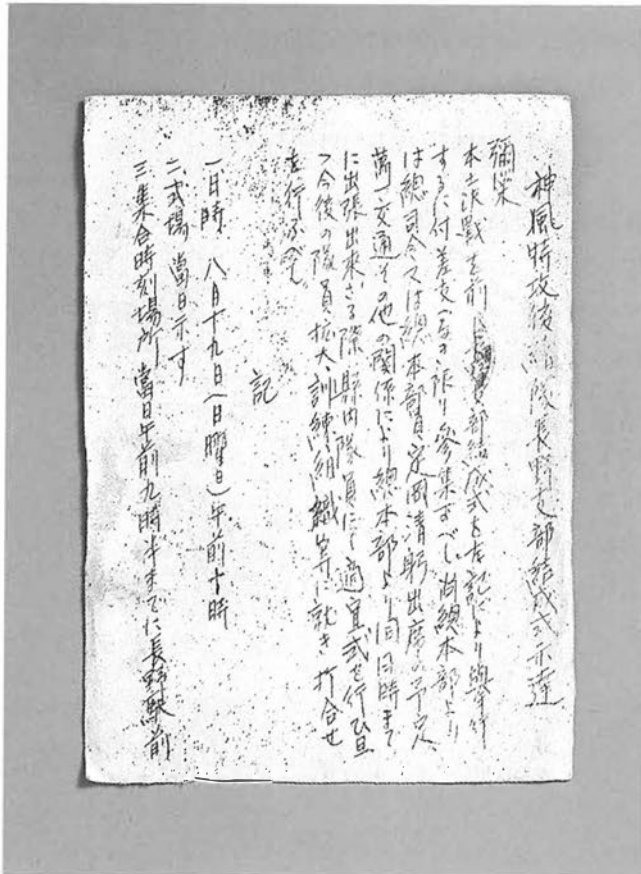 神風特攻後続隊長野支部結成式示達
彌栄
本土決戦を前に支部結成式を左記により挙行
するに付差支へ無き限り參集すべし尚總本部より
は總司令又は總本部員、定岡清躬出席の予定
萬一交通その他の関係により總本部より同日時まで
に出張出来ざる際縣内隊員にて適宜式を行ひ且
つ今後の隊員拡大、訓練、組織等に就き打合せ
を行ふべし
記
一 日時 八月十九日(日曜日)午前十時
二 式場 當日示す
三 集合時刻場所 當日午前九時半までに長野駅前